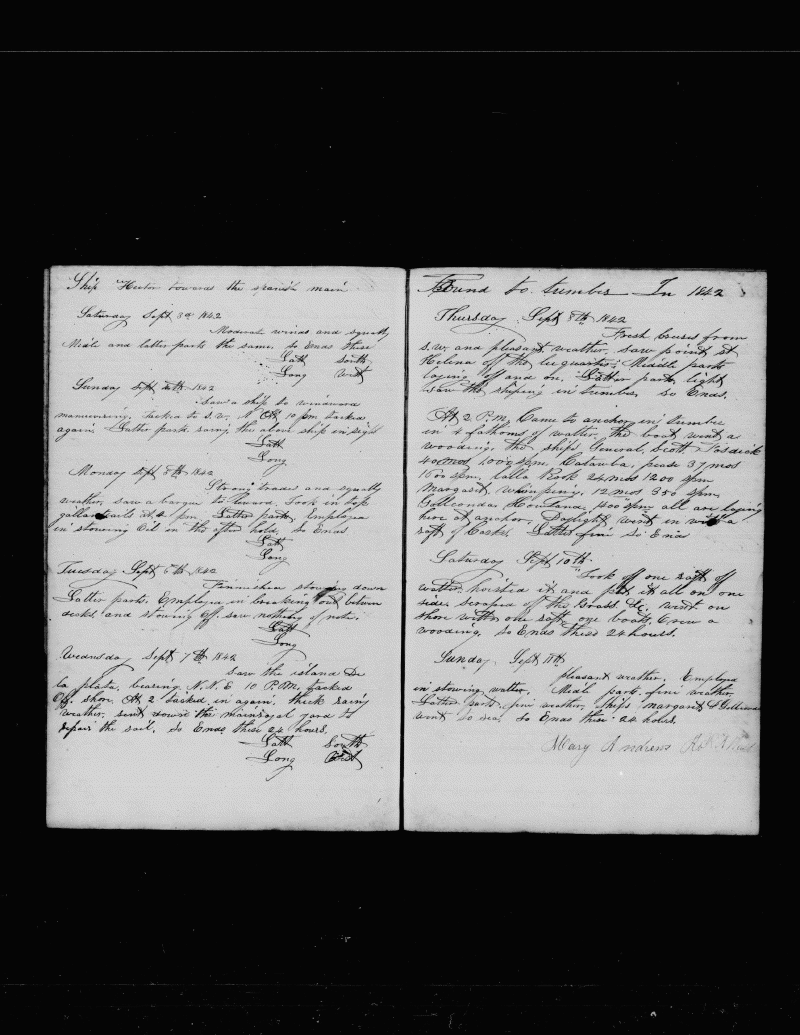 Ship Hector towards the spanish main
Saturday Sept 3d 1842
Moderate winds and squally
Midl and latter parts the same. So Ends these
Latt South
Long West
Sunday Sept 4th 1842
Saw a ship to windward
manuvering. tacked to S.W. N At 10 pm tacked
again Latter parts. rainy, the above ship in sight
Latt
Long
Monday Sept 5th 1842
Strong trades and squally
weather, saw a barque to leward. Took in top
gallantsails at 2 pm. Latter parts Employed
in stowing Oil in the after hold, So Ends
Latt
Long
Tuesday Sept 6th 1842
Finnished stowing down
Latter parts. Employed in breaking out betwen
decks, and stowing off. saw nothing of note.
Latt
Long
Wedensday Sept 7th 1842
Saw the island De
la plata. bearing N.N.E 10 P.M. tacked
Off. shore. At 2 tacked in again. thick rainy
weather. sent down the mainroyal yard to
repair the sail. So Ends these 24 hours.
Latt South
Long West
Bound to tumbes In 1842
Thursday Sept 8th 1842
Fresh breeses from
S.W. and pleasant weather, saw point st
Helena off the lee quarter. Middle parts
laying off and on. Latter parts light
saw the shiping in tumbes. So Ends.
At 2 P.M. Came to anchor in tumbes
in fathoms of watter, the boat went a
wooding. the ships General Scott Fosdick
40 mos 1000 spm. Catauba, pease 37 mos
1500 spm. Lalla Rook 24 mos 1200 spm
Margaret 12 mos 350 spm
Gallconda Howland, 400 spm all are laying
here at anchor. Daylight went in with a
raft of Casks. Latter fine So Ends
Saturday Sept 10th
Took off one raft off
watter. hoisted it and put it all on one
side: scraped off the Boats. &c. went on
shore with one raft. one boats Crew a
wooding, So Ends these 24 hours.
Sunday Sept 11th
pleasant weather. Employed
in stowing watter, Midl part. fine weather,
Latter parts fine weather, ships margaret & Gallconda
went to sea. So Ends these 24 hours.
Mary Andrews